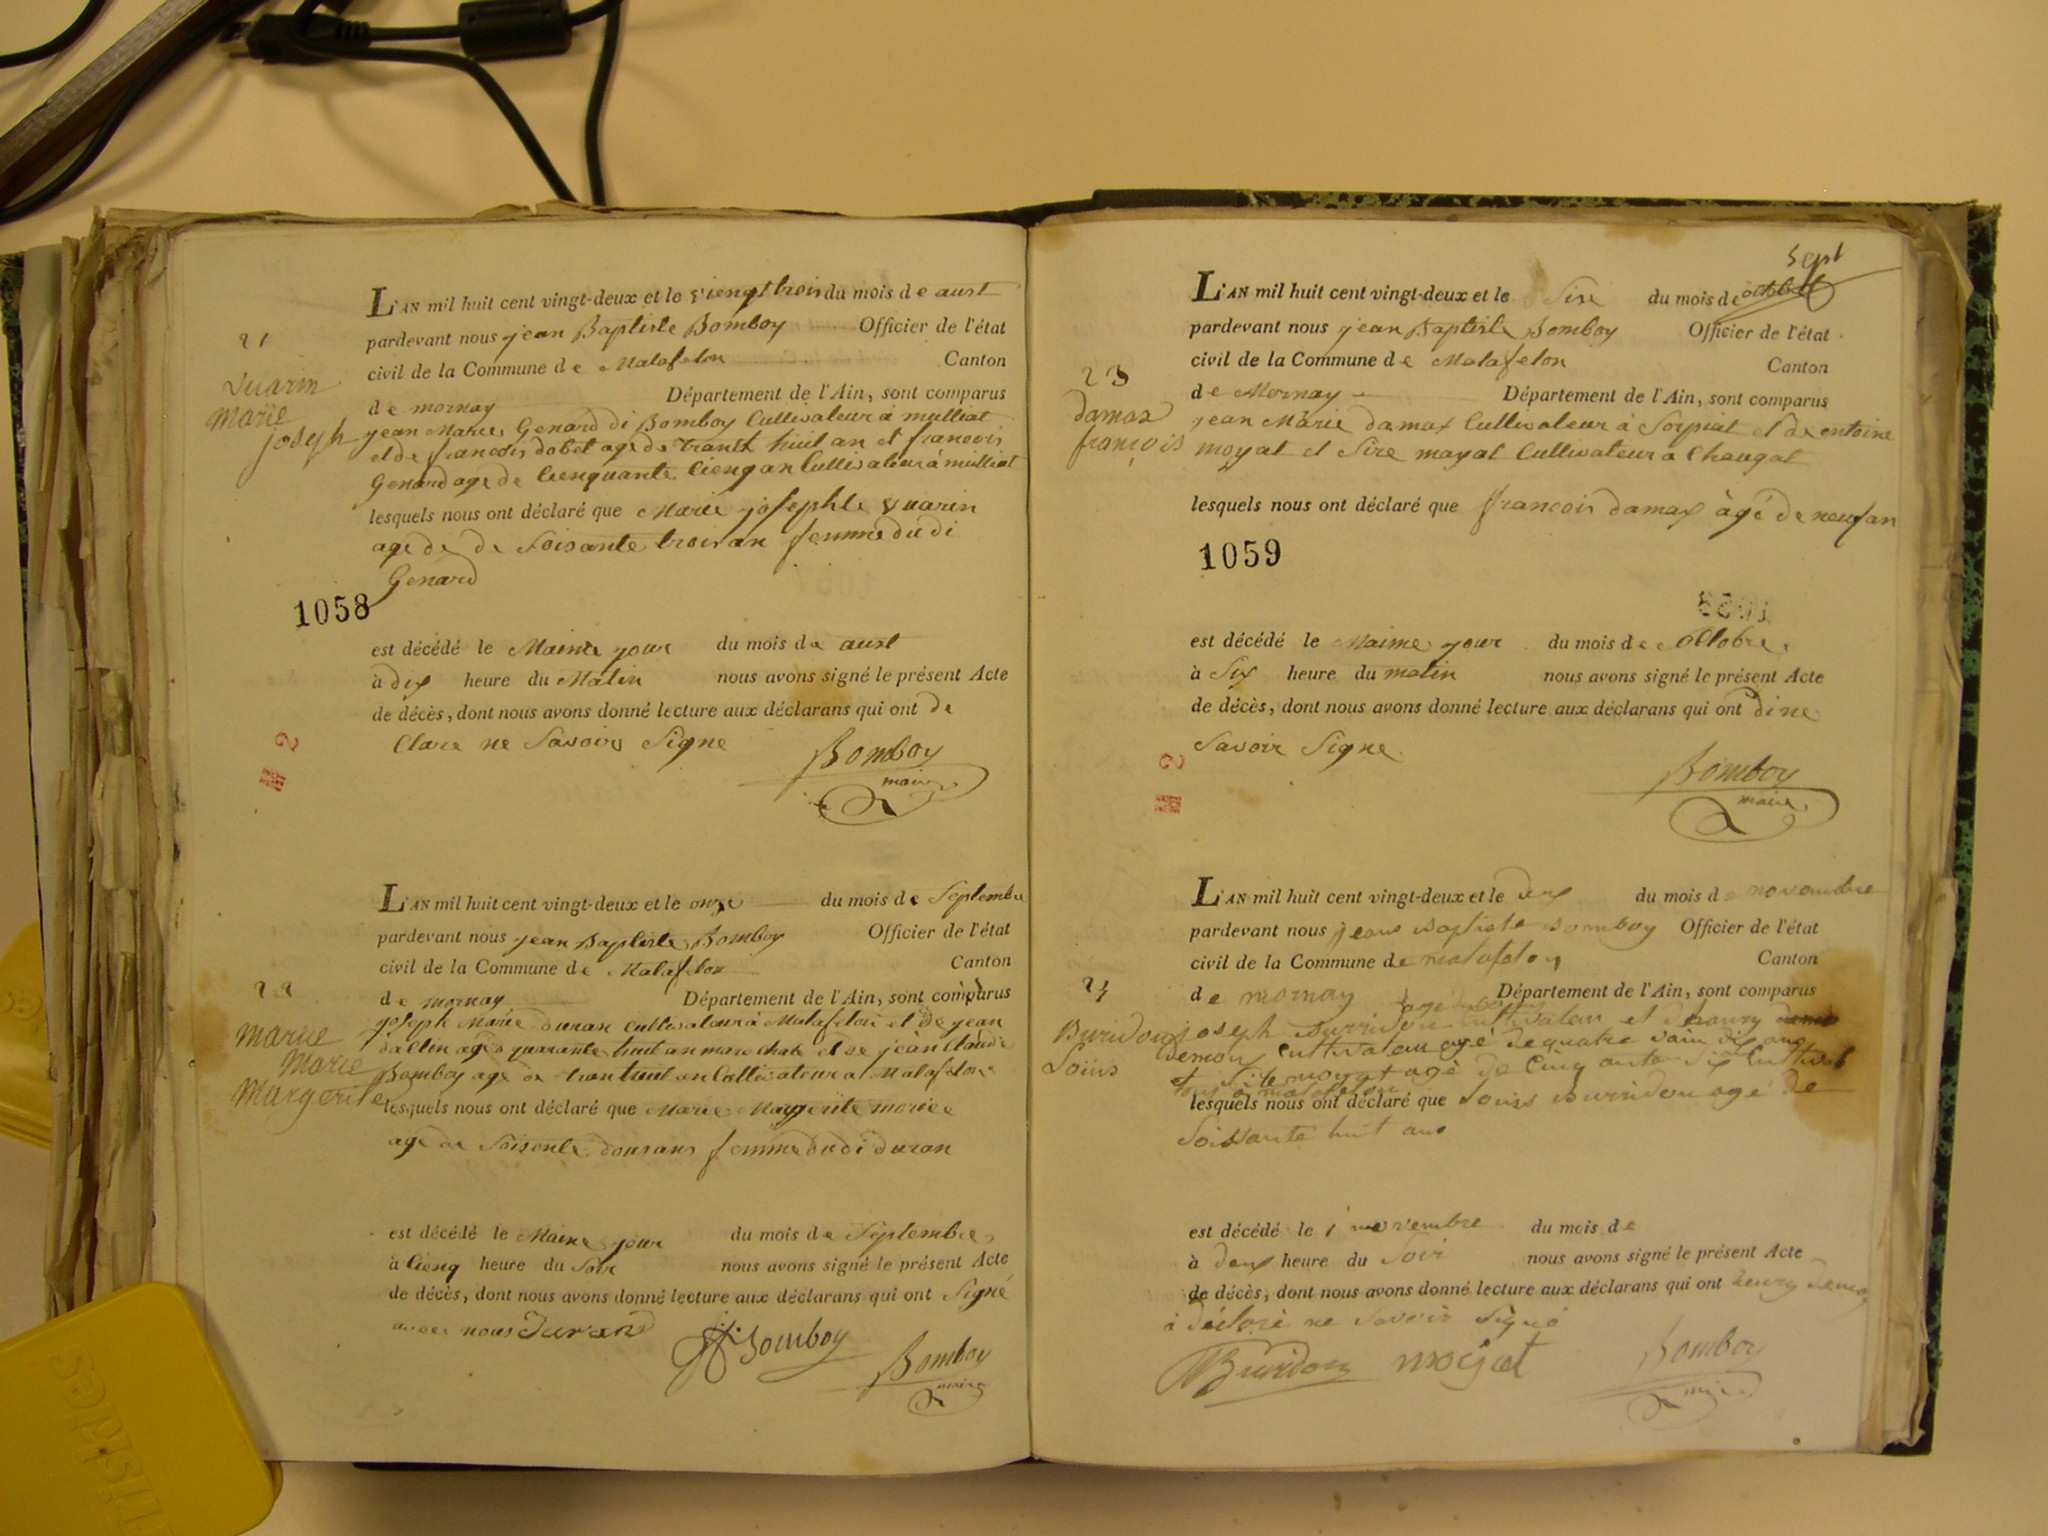 21
Vuarin
Marie
joseph
L'AN mil huit cent vingt-deux et le viengt trois du mois de aust
pardevant nous jean Baptiste Bomboy Officier de l'état
civil de la Commune de Matafelon Canton
de mornay Département de l'Ain, sont comparus
jean Marie Genard di Bomboy Cultivateur à mulliat
et de francois dobet age de trante huit an et francois
Genard age de Cienquante Cieng an Cultivateur à mulliat
lesquels nous ont déclaré que Marie josephte Vuarin
age de de Soisante trois an femme du di
Genard
1058
est décédé le Maime jour du mois de aust
à dix heure du Matin nous avons signé le présent Acte
de décès, dont nous avons donné lecture aux déclarans qui ont de
Clare ne Savoir Signe
Bomboy
maire
22
Marie
Margerite
L'AN mil huit cent vingt-deux et le onze du mois de Septembre
pardevant nous jean Baptiste Bomboy Officier de l'état
civil de la Commune de Matafelon Canton
de mornay Département de l'Ain, sont comparus
joseph Marie duran Cultivateur à Matafelon et de jean
age quarante huit an et de jean Claude
Bomboy age de Cultivateur a Matafelon
lesquels nous ont déclaré que Marie Margerite
age de Soisente femme du di duran
est décédé le Maime jour du mois de Septembre
à Cienq heure du Soir nous avons signé le présent Acte
de décès, dont nous avons donné lecture aux déclarans qui ont Signé
avec nous Durand
Bomboy
Bomboy
maire
23
damax
françois
L'AN mil huit cent vingt-deux et le Sixe du mois de octobre Sept
pardevant nous jean Baptiste Bomboy Officier de l'état
civil de la Commune de Matafelon Canton
de Mornay Département de l'Ain, sont comparus
jean Marie damax Cultivateur à Corpiat et de entoine
moyat et Sire mayat Cultivateur a Chaugat
lesquels nous ont déclaré que francois damax àgé de neuf an
1059
est décédé le Maime jour du mois de Octobre
à Six heure du matin nous avons signé le présent Acte
de décès, dont nous avons donné lecture aux déclarans qui ont di ne
Savoir Signe
Bomboy
maire
24
Buridon
Loüis
L'AN mil huit cent vingt-deux et le deux du mois de novembre
pardevant nous jean Baptiste Bomboy Officier de l'état
civil de la Commune de matafelon Canton
de mornay Département de l'Ain, sont comparus
joseph Burridon Cultivateur et henry
Cultivateur agé de quatre vain dix ans
et moyat agé de Cinquante Six
lesquels nous ont déclaré que Louis Burridon agé de
Soissante huit ans
est décédé le 1 novembre du mois de
à deux heure du Soir nous avons signé le présent Acte
de décès, dont nous avons donné lecture aux déclarans qui ont henry
à déclaré ne Savoir Signé
Buridon moyat
Bomboy
maire